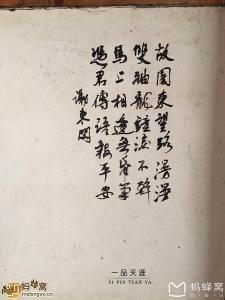 故園東望路漫漫
雙袖龍鍾淚不乾
馬上相逢無帋筆
憑君傳語報平安
謝東閔
一品天涯
YI PIN TIAN YA
蚂蜂窝
mafengwo.cn
蚂蜂窝